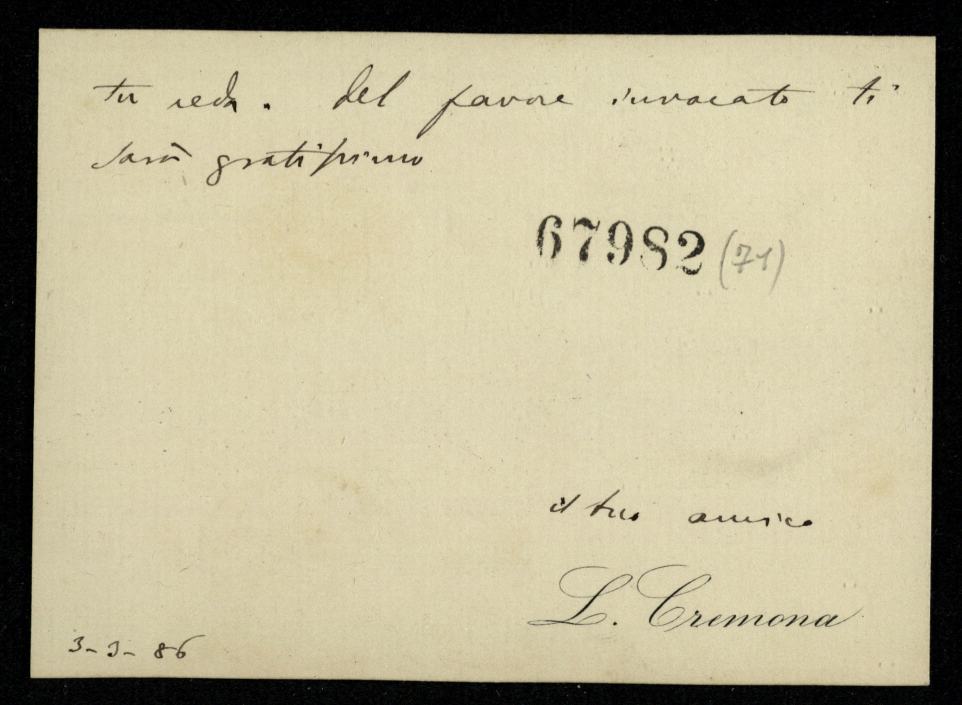 tu veda. Del favore invocato ti
sarà gratissimo
67982 (71)
il tuo amico
L. Cremona
3-3-86